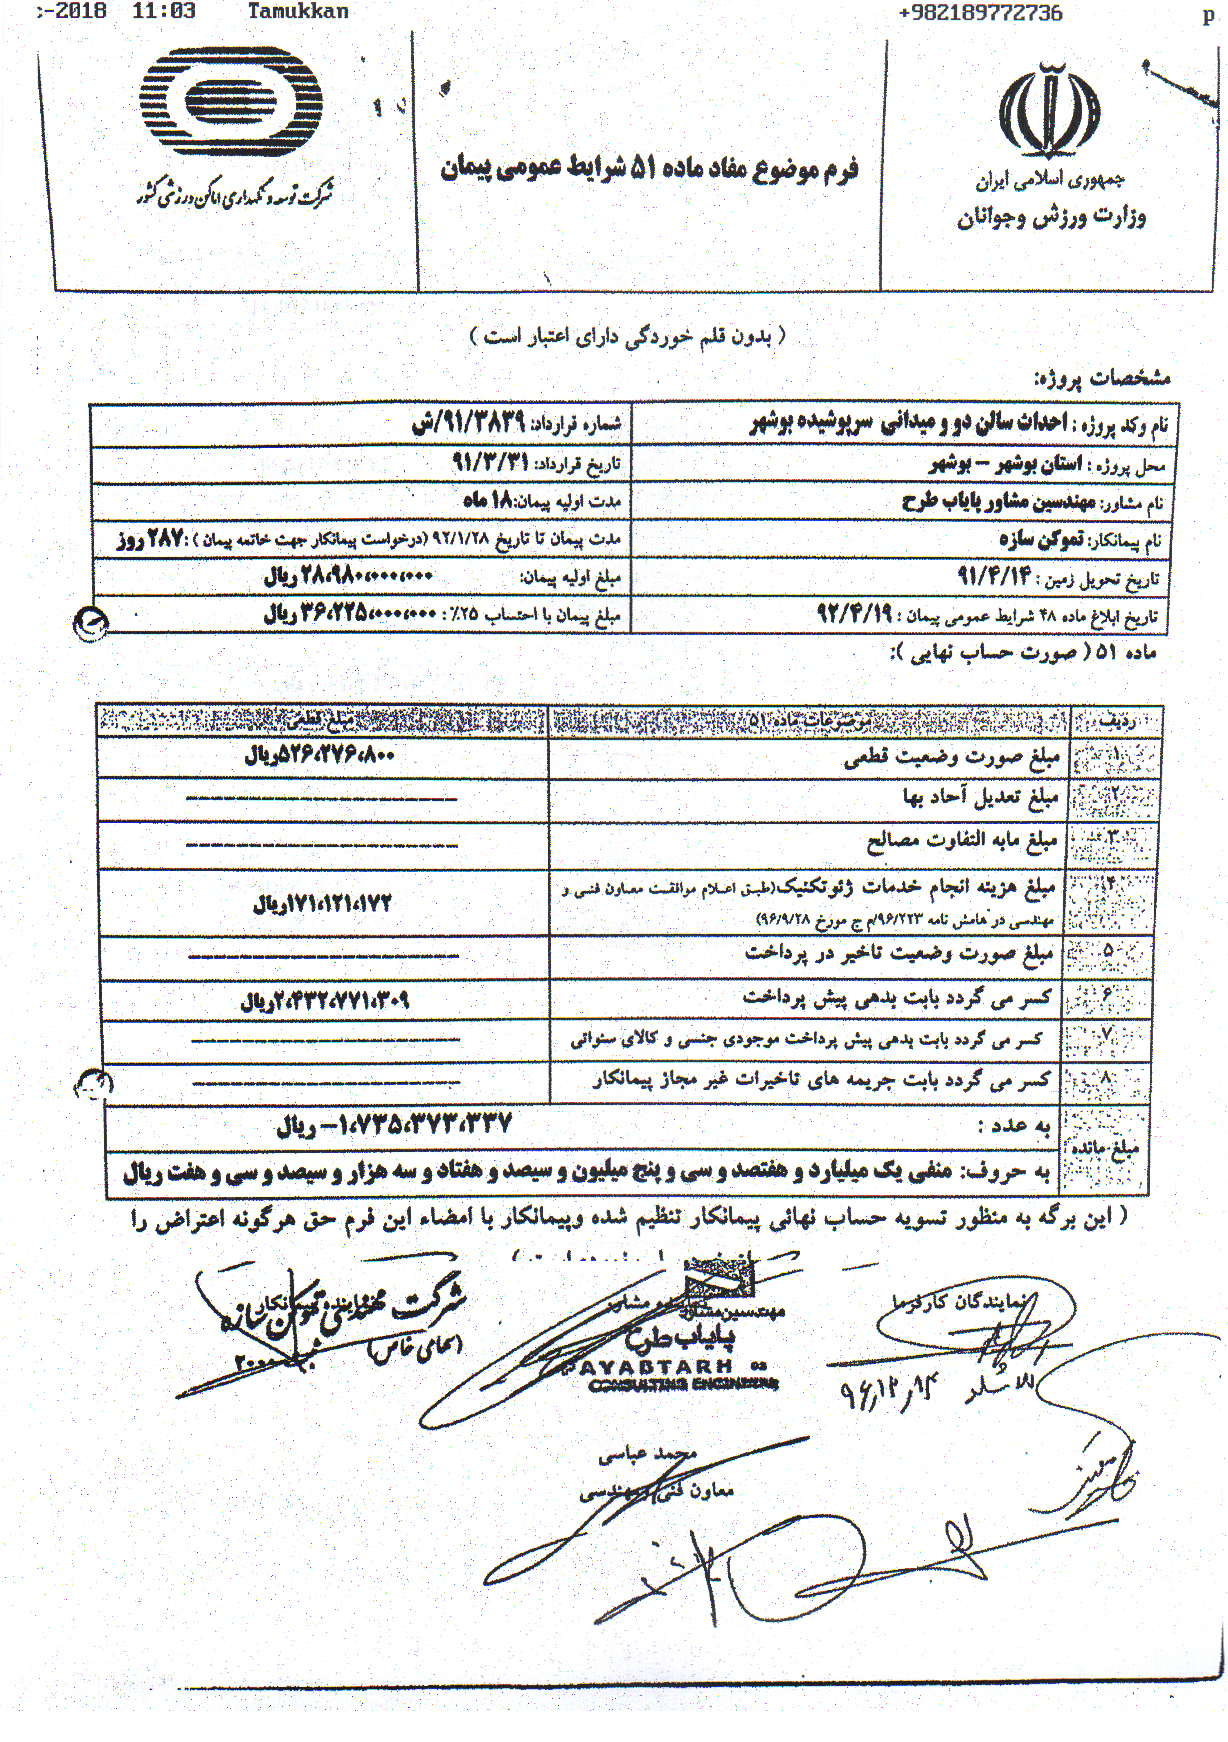 -2018 11:03 Tamukkan +982189772736 p
جمهوری اسلامی ایران
وزارت ورزش وجوانان
فرم موضوع مفاد ماده ۵۱ شرایط عمومی پیمان
شرکت توسعه و نگهداری اماکن ورزشی کشور
( بدون قلم خوردگی دارای اعتبار است )
مشخصات پروژه:
نام وکد پروژه : احداث سالن دو و میدانی سرپوشیده بوشهر
شماره قرارداد: ۹۱/۳۸۳۹/ش
محل پروژه : استان بوشهر – بوشهر
تاریخ قرارداد: ۹۱/۳/۳۱
نام مشاور: مهندسین مشاور پایاب طرح
مدت اولیه پیمان:۱۸ ماه
نام پیمانکار: تموکن سازه
مدت پیمان تا تاریخ ۹۲/۱/۲۸ (درخواست پیمانکار جهت خاتمه پیمان ) :۲۸۷ روز
تاریخ تحویل زمین : ۹۱/۴/۱۴
مبلغ اولیه پیمان: ۲۸،۹۸۰،۰۰۰،۰۰۰ ریال
تاریخ ابلاغ ماده ۴۸ شرایط عمومی پیمان : ۹۲/۴/۱۹
مبلغ پیمان با احتساب ۲۵٪ : ۳۶،۲۲۵،۰۰۰،۰۰۰ ریال
ماده ۵۱ ( صورت حساب نهایی ):
ردیف موضوعات ماده ۵۱ مبلغ قطعی
۱ مبلغ صورت وضعیت قطعی ۵۲۶،۲۷۶،۸۰۰ریال
۲ مبلغ تعدیل آحاد بها ----------------------------
۳ مبلغ مابه التفاوت مصالح ----------------------------
۴ مبلغ هزینه انجام خدمات ژئوتکنیک(طبق اعلام موافقت معاون فنی و
مهندسی در هامش نامه ۹۶/۲۲۳/م ج مورخ ۹۶/۹/۲۸) ۱۷۱،۱۲۱،۱۷۲ریال
۵ مبلغ صورت وضعیت تاخیر در پرداخت ----------------------------
۶ کسر می گردد بابت بدهی پیش پرداخت ۲،۴۳۲،۷۷۱،۳۰۹ریال
۷ کسر می گردد بابت بدهی پیش پرداخت موجودی جنسی و کالای سنواتی ----------------------------
۸ کسر می گردد بابت جریمه های تاخیرات غیر مجاز پیمانکار ----------------------------
مبلغ مانده به عدد : ۱،۷۳۵،۳۷۳،۳۳۷– ریال
به حروف: منفی یک میلیارد و هفتصد و سی و پنج میلیون و سیصد و هفتاد و سه هزار و سیصد و سی و هفت ریال
( این برگه به منظور تسویه حساب نهائی پیمانکار تنظیم شده وپیمانکار با امضاء این فرم حق هرگونه اعتراض را
نمایندگان کارفرما
مهندسین مشاور
پایاب طرح
PAYABTARH
CONSULTING ENGINEERS
نماینده پیمانکار
شرکت مهندسی تموکن سازه
(سهامی خاص)
ثبت ۲۰۰۰
۹۶،۱۲،۱۴
محمد عباسی
معاون فنی و مهندسی